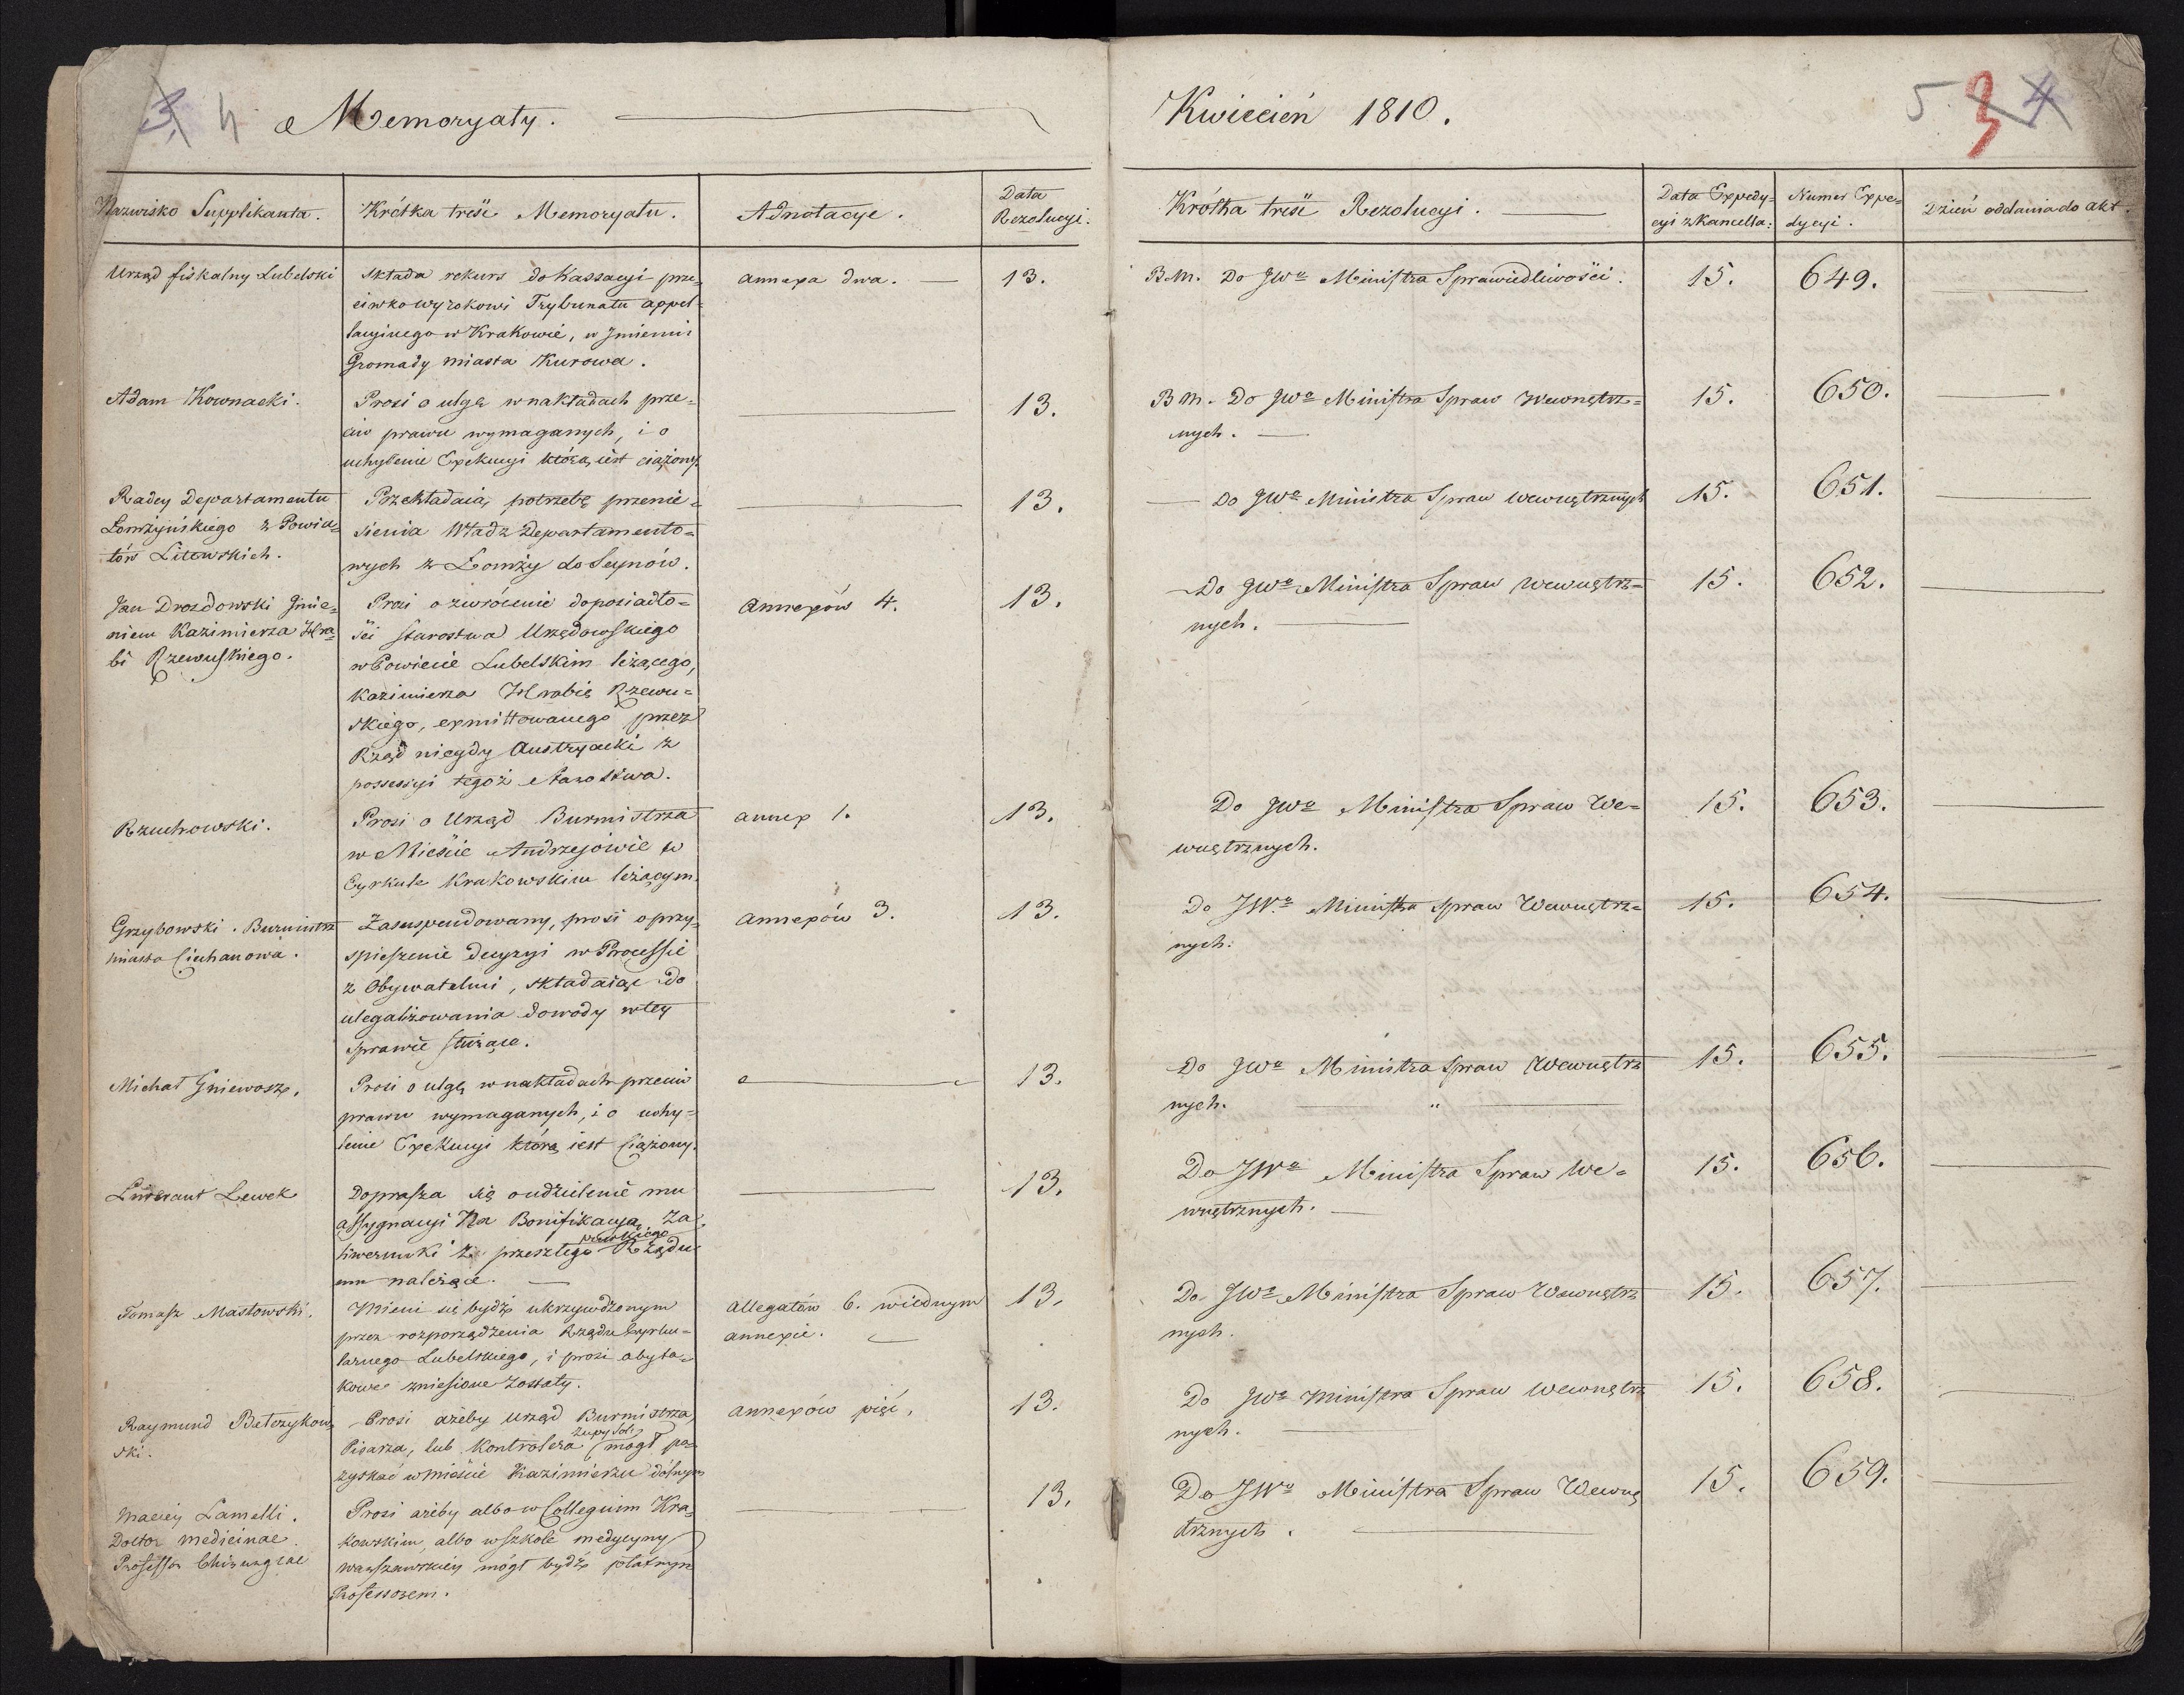 3. 4 Memoryały.
Kwiecień 1810.
5. 3 4
Nazwisko Supplikanta.
Krótka treść Memoryału.
Adnotacye.
Data
Rezolucyi.
Krótka treść Rezolucyi.
Data Expedy=
cyi z Kancella:
Numer Expe=
dycyi.
Dzień oddania do akt.
Urząd fiskalny Lubelski
Składa rekurs do Kassacyi prze=
ciwko wyrokowi Trybunału appel=
lacyinego w Krakowie, w Jmieniu
Gromady miasta Kurowa.
annexa dwa.
13.
B.M. Do JWo Ministra Sprawiedliwości.
15.
649.
Adam Kownacki.
Prosi o ulgę w nakładach prze=
ciw prawu wymaganych, i o
uchylenie Exekucyi którą iest ciążony.
13.
B.M. Do JWo Ministra Spraw Wewnętrz=
nych.
15.
650.
Radcy Departamentu
Łomżyńskiego z Powia=
tów Litewskich.
Przekładaią potrzebę przenie=
sienia Władz Departamento=
wych z Łomży do Seynów.
13.
Do JWo Ministra Spraw Wewnętrznych
15.
651.
Jan Drozdowski Jmie=
niem Kazimierza Hra=
bi Rzewuskiego.
Prosi o zwrócenie do posiadło=
ści starostwa Urzędowskiego
w Powiecie Lubelskim leżącego,
Kazimierza Hrabię Rzewu=
skiego, exmittowanego przez
Rząd niegdy Austryacki z
possessyi tegoż Starostwa.
Annexów 4.
13.
Do JWo Ministra Spraw Wewnętrz=
nych.
15.
652.
Rzuchowski.
Prosi o Urząd Burmistrza
w Mieście Andrzejowie w
Cyrkule Krakowskim leżącym.
annex 1.
13.
Do JWo Ministra Spraw We=
wnętrznych.
15.
653.
Grzybowski. Burmistrz
miasta Ciechanowa.
Zasuspendowany, prosi o przy=
spieszenie decyzyi w Processie
z Obywatelmi, składaiąc do
ulegalizowania dowody w tey
sprawie służące.
Annexów 3.
13.
Do JWo Ministra Spraw Wewnętrz=
nych.
15.
654.
Michał Gniewosz.
Prosi o ulgę w nakładach przeciw
prawu wymaganych, i o uchy=
lenie Exekucyi którą iest ciążony.
13.
Do JWo Ministra Spraw Wewnętrz
nych. "
15.
655.
Liwerant Lewek
Doprasza się o udzielenie mu
assygnacyi Na Bonifikacyą Za
liwerunki z przeszłego pruskiego Rządu
mu należące.
13.
Do JWo Ministra Spraw We=
wnętrznych.
15.
656.
Tomasz Masłowski.
Mieni się bydź ukrzywdzonym
przez rozporządzenia Rządu Cyrku=
larnego Lubelskiego, i prosi aby ta=
kowe zniesione zostały.
Allegatów 6. w iednym
annexie.
13.
Do JWo Ministra Spraw Wewnętrz
nych.
15.
657.
Raymund Betczykow=
ski.
Prosi ażeby urząd Burmistrza,
Pisarza, lub Kontrolera Żupy Soli mogł po=
zyskać w mieście Kazimierzu dolnym
Annexów pięć.
13.
Do JWo Ministra Spraw Wewnętrz
nych.
15.
658.
Maciey Lamelli.
Doctor medicinae.
Professor Chirurgiae
Prosi ażeby albo w Collegium Kra=
kowskim, albo w szkole medycyny
warszawskiey mógł bydź płatnym
Professorem.
13.
Do JWo Ministra Spraw Wewnę
trznych.
15.
659.